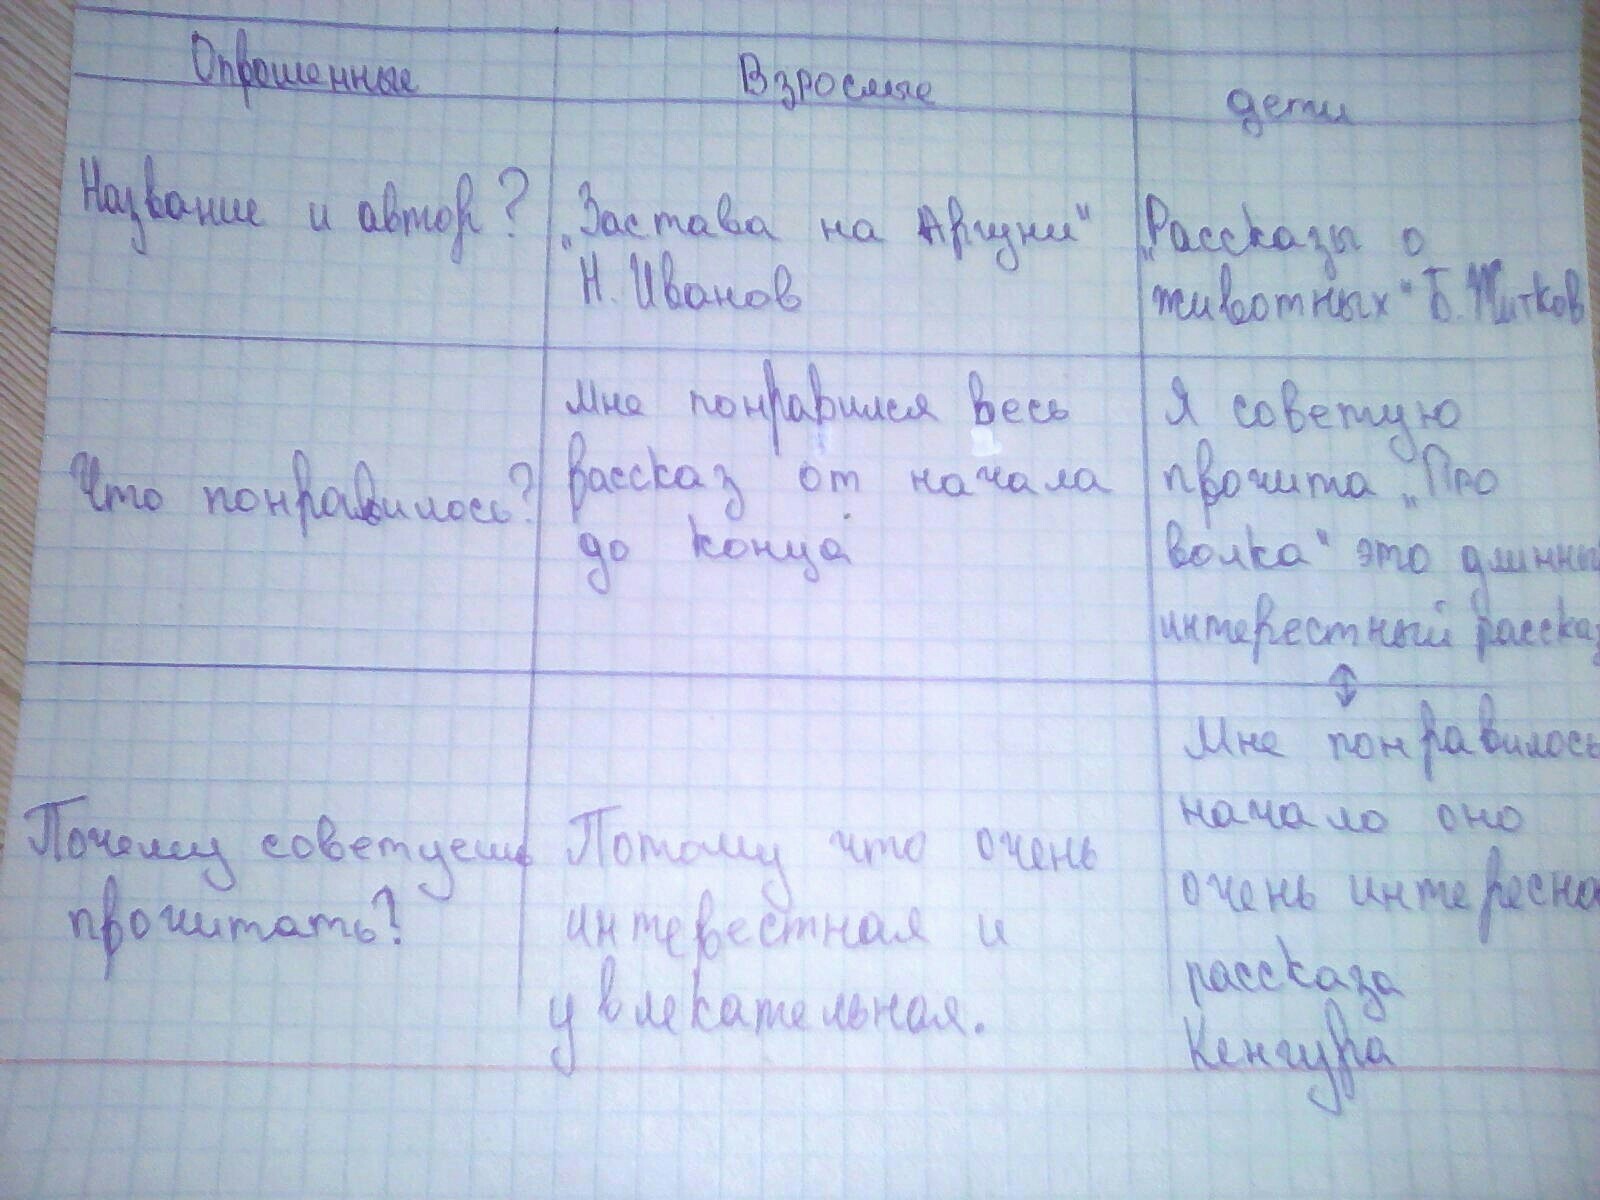 Опрошенные
Взрослые
дети
Название и автор?
„Застава на Аргуни"
Н. Иванов
„Рассказы о
животных" Б. Житков
Что понравилось?
Мне понравился весь
рассказ от начала
до конца
Я советую
прочита „Про
волка" это длинны
интерестный рассказ
Почему советуешь
прочитать?
Потому что очень
интерестная и
увлекательная.
Мне понравилось
начало оно
очень интересно
рассказа
Кенгура